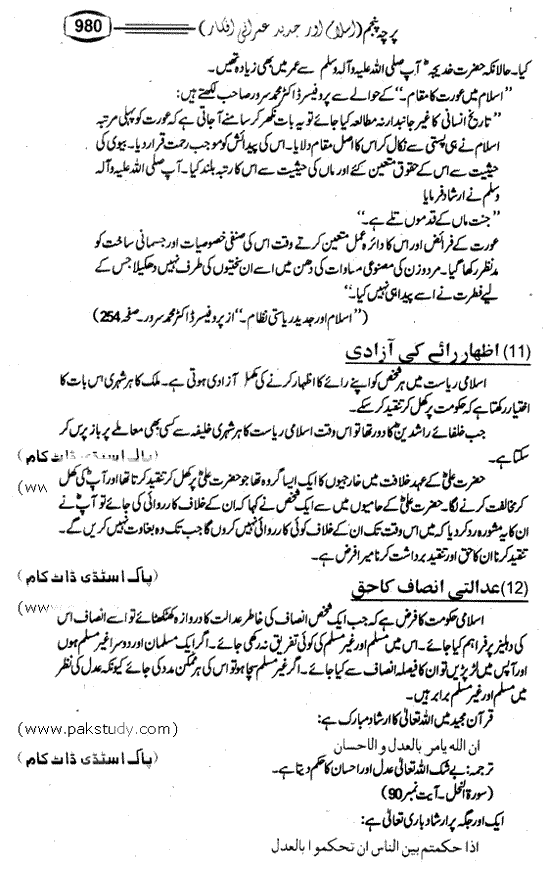 پرچہ پنجم (اسلام اور جدید عمرانی افکار)
980
کیا۔ حالانکہ حضرت خدیجہؓ آپ صلی اللہ علیہ و آلہ وسلم سے عمر میں بھی زیادہ تھیں۔
"اسلام میں عورت کا مقام۔" کے حوالے سے پروفیسر ڈاکٹر محمد سرور صاحب لکھتے ہیں:
"تاریخ انسانی کا غیر جانبدارانہ مطالعہ کیا جائے تو یہ بات نکھر کر سامنے آ جاتی ہے کہ عورت کو پہلی مرتبہ
اسلام نے ہی پستی سے نکال کر اس کا اصل مقام دلایا۔ اس کی پیدائش کو موجب رحمت قرار دیا۔ بیوی کی
حیثیت سے اس کے حقوق متعین کئے اور ماں کی حیثیت سے اس کا رتبہ بلند کیا۔ آپ صلی اللہ علیہ و آلہ
وسلم نے ارشاد فرمایا
"جنت ماں کے قدموں تلے ہے۔"
عورت کے فرائض اور اس کا دائرہ عمل متعین کرتے وقت اس کی صنفی خصوصیات اور جسمانی ساخت کو
مدنظر رکھا گیا۔ مرد و زن کی مصنوعی مساوات کی دھن میں اسے ان سختیوں کی طرف نہیں دھکیلا جس کے
لیے فطرت نے اسے پیدا ہی نہیں کیا۔"
("اسلام اور جدید ریاستی نظام۔" از پروفیسر ڈاکٹر محمد سرور۔ صفحہ 254)
(11) اظہار رائے کی آزادی
اسلامی ریاست میں ہر شخص کو اپنے رائے کا اظہار کرنے کی مکمل آزادی ہوتی ہے۔ ملک کا ہر شہری اس بات کا
اختیار رکھتا ہے کہ حکومت پر کھل کر تنقید کر سکے۔
جب خلفائے راشدینؓ کا دور تھا تو اس وقت اسلامی ریاست کا ہر شہری خلیفہ سے کسی بھی معاملے پر باز پرس کر
سکتا ہے۔
پاک اسٹڈی ڈاٹ کام)
حضرت علیؓ کے عہد خلافت میں خارجیوں کا ایک ایسا گروہ تھا جو حضرت علیؓ پر کھل کر تنقید کرتا تھا اور آپؓ کی کھل
(ww
کر مخالفت کرنے لگا۔ حضرت علیؓ کے حامیوں میں سے ایک شخص نے کہا کہ ان کے خلاف کارروائی کی جائے تو آپؓ نے
ان کا یہ مشورہ رد کر دیا کہ میں اس وقت تک ان کے خلاف کوئی کارروائی نہیں کروں گا جب تک وہ بغاوت نہیں کریں گے۔
تنقید کرنا ان کا حق اور تنقید برداشت کرنا میرا فرض ہے۔
(پاک اسٹڈی ڈاٹ کام)
(12) عدالتی انصاف کا حق
(www
اسلامی حکومت کا فرض ہے کہ جب ایک شخص انصاف کی خاطر عدالت کا دروازہ کھٹکھٹائے تو اسے انصاف اس
کی دہلیز پر فراہم کیا جائے۔ اس میں مسلم اور غیر مسلم کی کوئی تفریق نہ رکھی جائے۔ اگر ایک مسلمان اور دوسرا غیر مسلم ہوں
اور آپس میں لڑ پڑیں تو ان کا فیصلہ انصاف سے کیا جائے۔ اگر غیر مسلم سچا ہو تو اس کی ہر ممکن مدد کی جائے کیونکہ عدل کی نظر
میں مسلم اور غیر مسلم برابر ہیں۔
قرآن مجید میں اللہ تعالیٰ کا ارشاد مبارک ہے:
(www.pakstudy.com)
ان الله يامر بالعدل و الاحسان
ترجمہ: بے شک اللہ تعالیٰ عدل اور احسان کا حکم دیتا ہے۔
(پاک اسٹڈی ڈاٹ کام)
(سورۃ النحل۔ آیت نمبر 90)
ایک اور جگہ پر ارشاد باری تعالیٰ ہے:
اذا حكمتم بين الناس ان تحكموا بالعدل